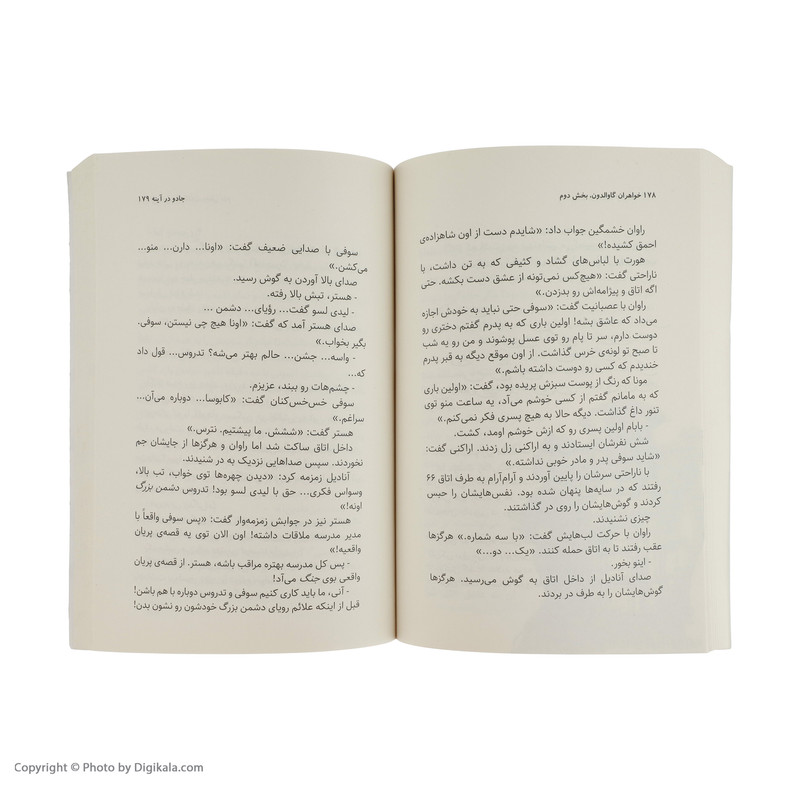 ۱۷۸ خواهران گاوالدون، بخش دوم
راوان خشمگین جواب داد: «شایدم دست از اون شاهزاده‌ی
احمق کشیده!»
هورت با لباس‌های گشاد و کثیفی که به تن داشت، با
ناراحتی گفت: «هیچ‌کس نمی‌تونه از عشق دست بکشه. حتی
اگه اتاق و پیژامه‌اش رو بدزدن.»
راوان با عصبانیت گفت: «سوفی حتی نباید به خودش اجازه
می‌داد که عاشق بشه! اولین باری که به پدرم گفتم دختری رو
دوست دارم، سر تا پام رو توی عسل پوشوند و من رو یه شب
تا صبح تو لونه‌ی خرس گذاشت. از اون موقع دیگه به قبر پدرم
خندیدم که کسی رو دوست داشته باشم.»
مونا که رنگ از پوست سبزش پریده بود، گفت: «اولین باری
که به مامانم گفتم از کسی خوشم می‌آد، یه ساعت منو توی
تنور داغ گذاشت. دیگه حالا به هیچ پسری فکر نمی‌کنم.»
- بابام اولین پسری رو که ازش خوشم اومد، کشت.
شش نفرشان ایستادند و به اراکنی زل زدند. اراکنی گفت:
«شاید سوفی پدر و مادر خوبی نداشته.»
با ناراحتی سرشان را پایین آوردند و آرام‌آرام به طرف اتاق ۶۶
رفتند که در سایه‌ها پنهان شده بود. نفس‌هایشان را حبس
کردند و گوش‌هایشان را روی در گذاشتند.
چیزی نشنیدند.
راوان با حرکت لب‌هایش گفت: «با سه شماره.» هرگزها
عقب رفتند تا به اتاق حمله کنند. «یک... دو...»
- اینو بخور.
صدای آنادیل از داخل اتاق به گوش می‌رسید. هرگزها
گوش‌هایشان را به طرف در بردند.
جادو در آینه ۱۷۹
سوفی با صدایی ضعیف گفت: «اونا... دارن... منو...
می‌کشن.»
صدای بالا آوردن به گوش رسید.
- هستر، تبش بالا رفته.
- لیدی لسو گفت... رؤیای... دشمن ...
صدای هستر آمد که گفت: «اونا هیچ چی نیستن، سوفی.
بگیر بخواب.»
- واسه... جشن... حالم بهتر می‌شه؟ تدروس... قول داد
که...
- چشم‌هات رو ببند، عزیزم.
سوفی خس‌خس‌کنان گفت: «کابوسا... دوباره می‌آن...
سراغم.»
هستر گفت: «ششش. ما پیشتیم. نترس.»
داخل اتاق ساکت شد اما راوان و هرگزها از جایشان جم
نخوردند. سپس صداهایی نزدیک به در شنیدند.
آنادیل زمزمه کرد: «دیدن چهره‌ها توی خواب، تب بالا،
وسواس فکری... حق با لیدی لسو بود! تدروس دشمن بزرگ
اونه!»
هستر نیز در جوابش زمزمه‌وار گفت: «پس سوفی واقعاً با
مدیر مدرسه ملاقات داشته! اون الان توی یه قصه‌ی پریان
واقعیه!»
- پس کل مدرسه بهتره مراقب باشه، هستر. از قصه‌ی پریان
واقعی بوی جنگ می‌آد!
- آنی، ما باید کاری کنیم سوفی و تدروس دوباره با هم باشن!
قبل از اینکه علائم رویای دشمن بزرگ خودشون رو نشون بدن!
Copyright © Photo by Digikala.com